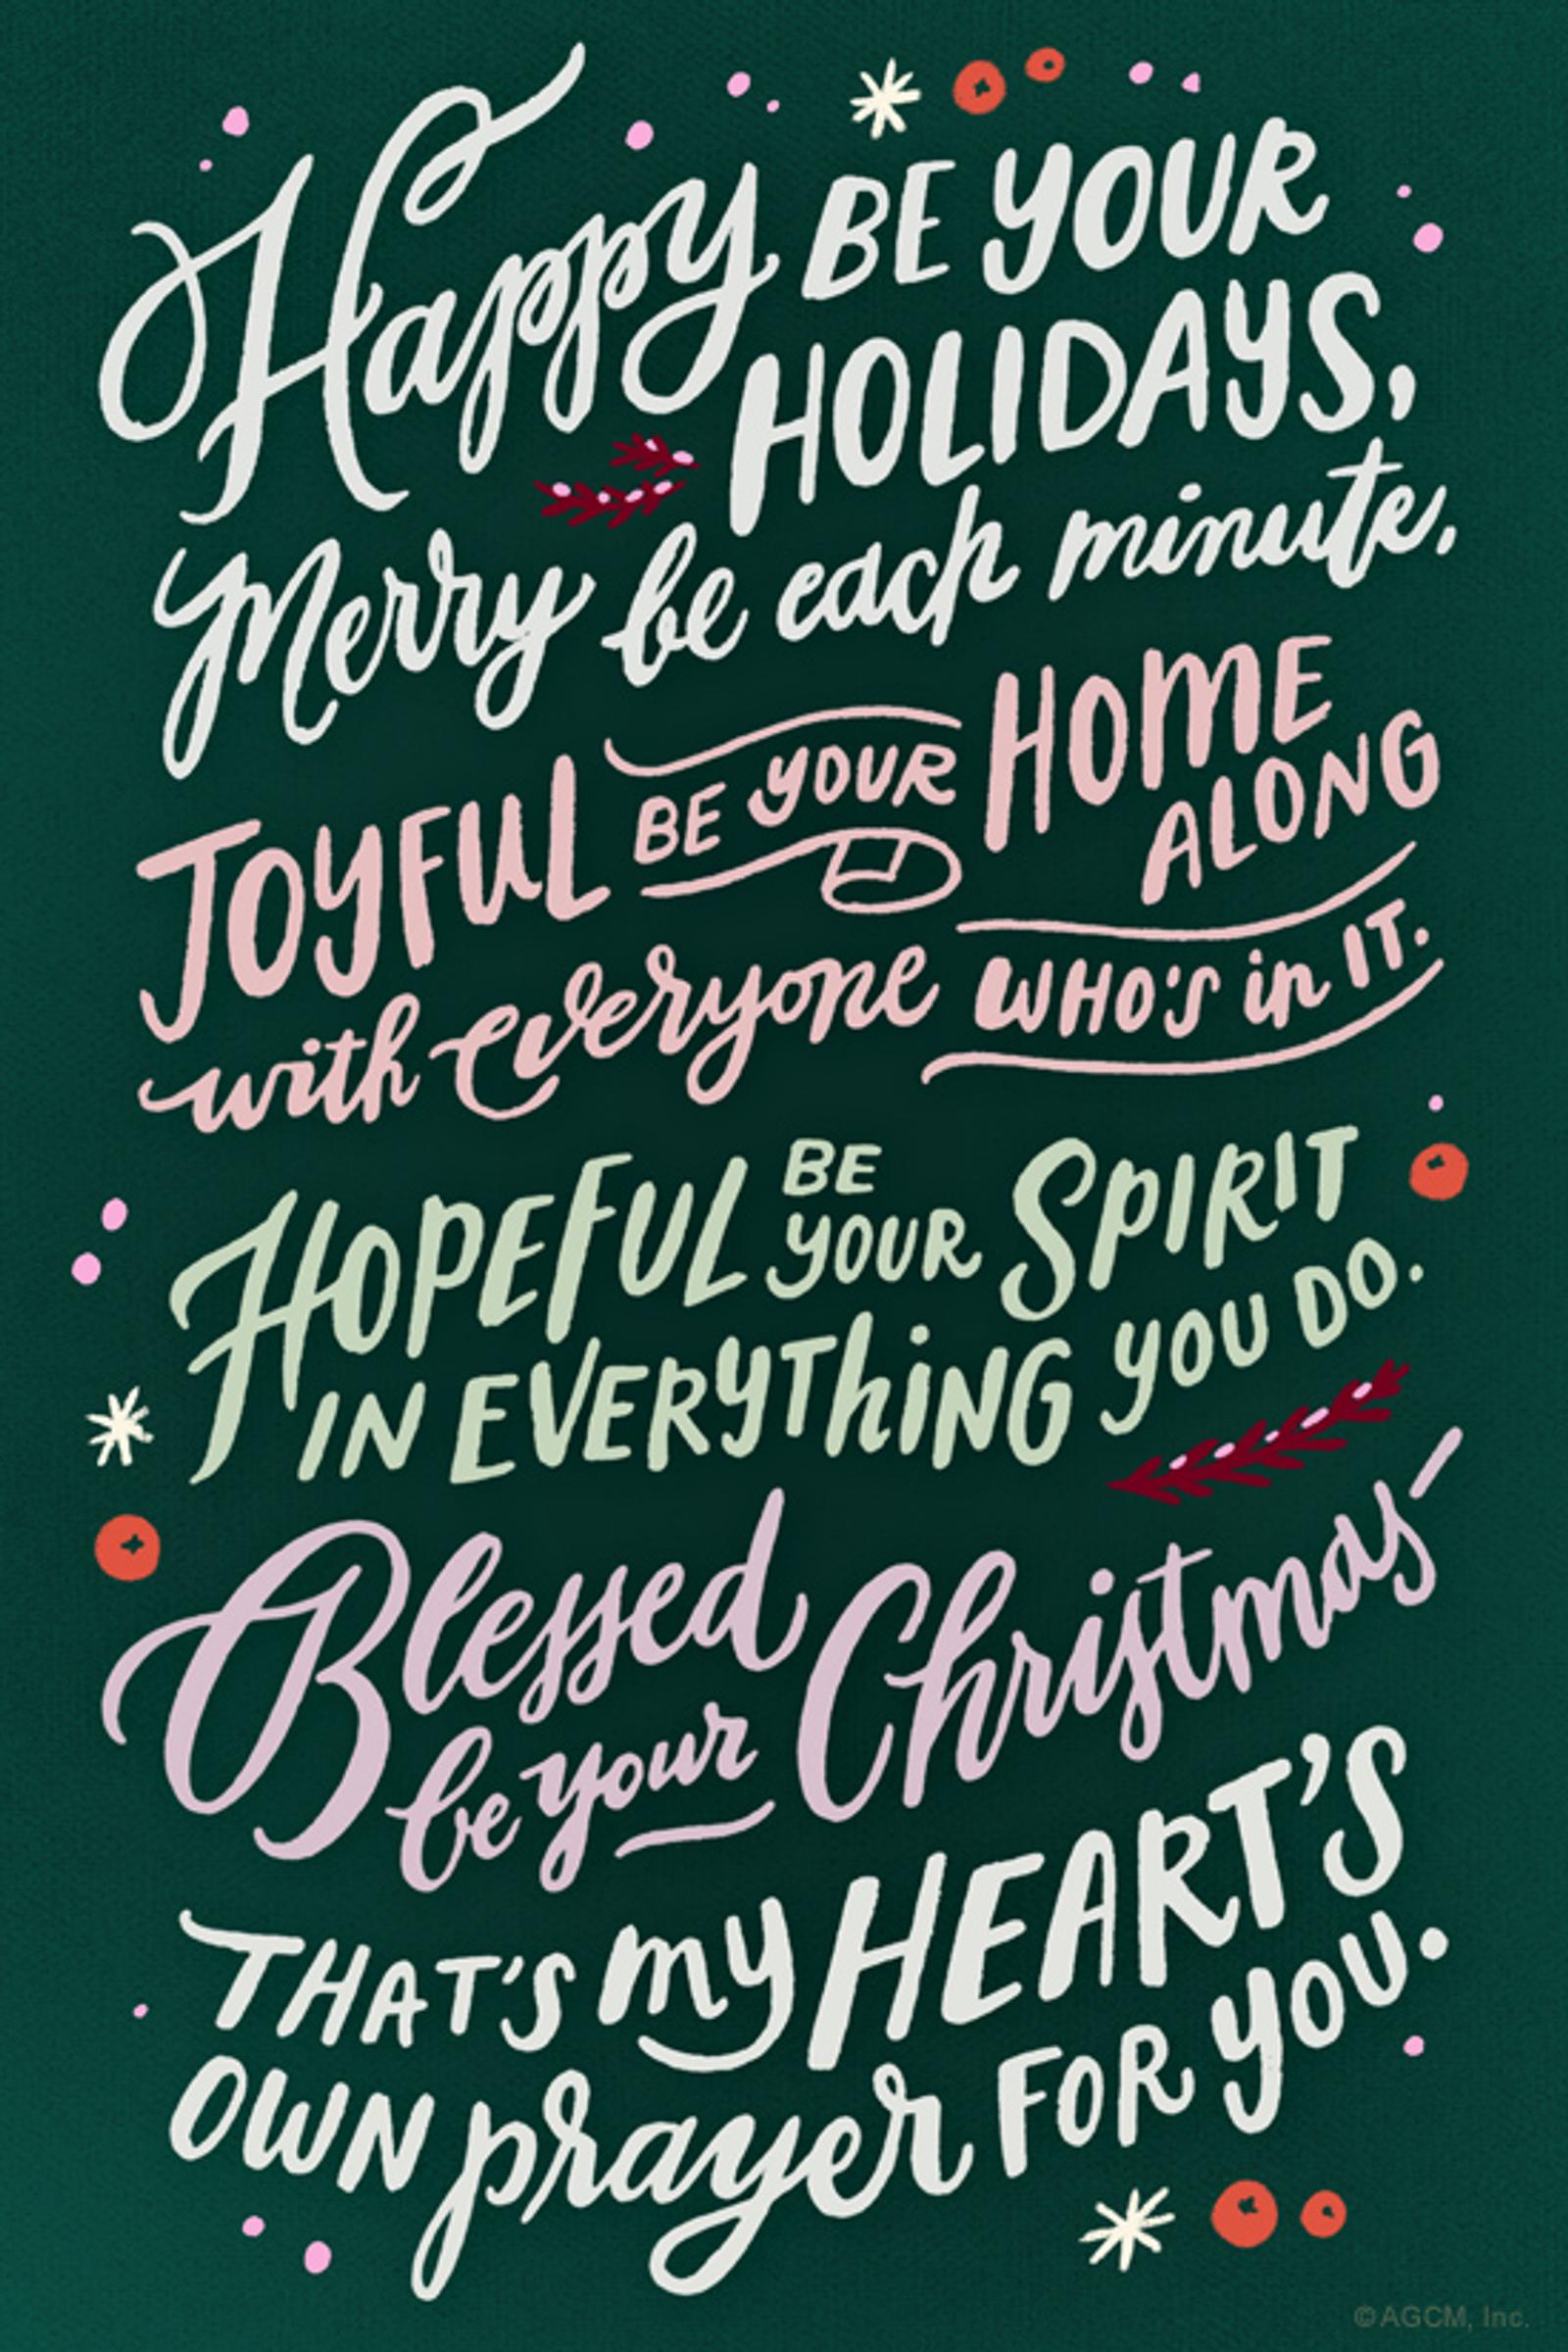 Happy BE YOUR
HOLIDAYS,
Merry be each minute.
JOYFUL BE YOUR HOME
ALONG
with everyone WHO'S in IT.
HOPEFUL BE YOUR SPIRIT
IN EVERYTHING YOU DO.
Blessed be your Christmas—
THAT'S my HEART'S
OWN prayer FOR YOU.
©AGCM, Inc.